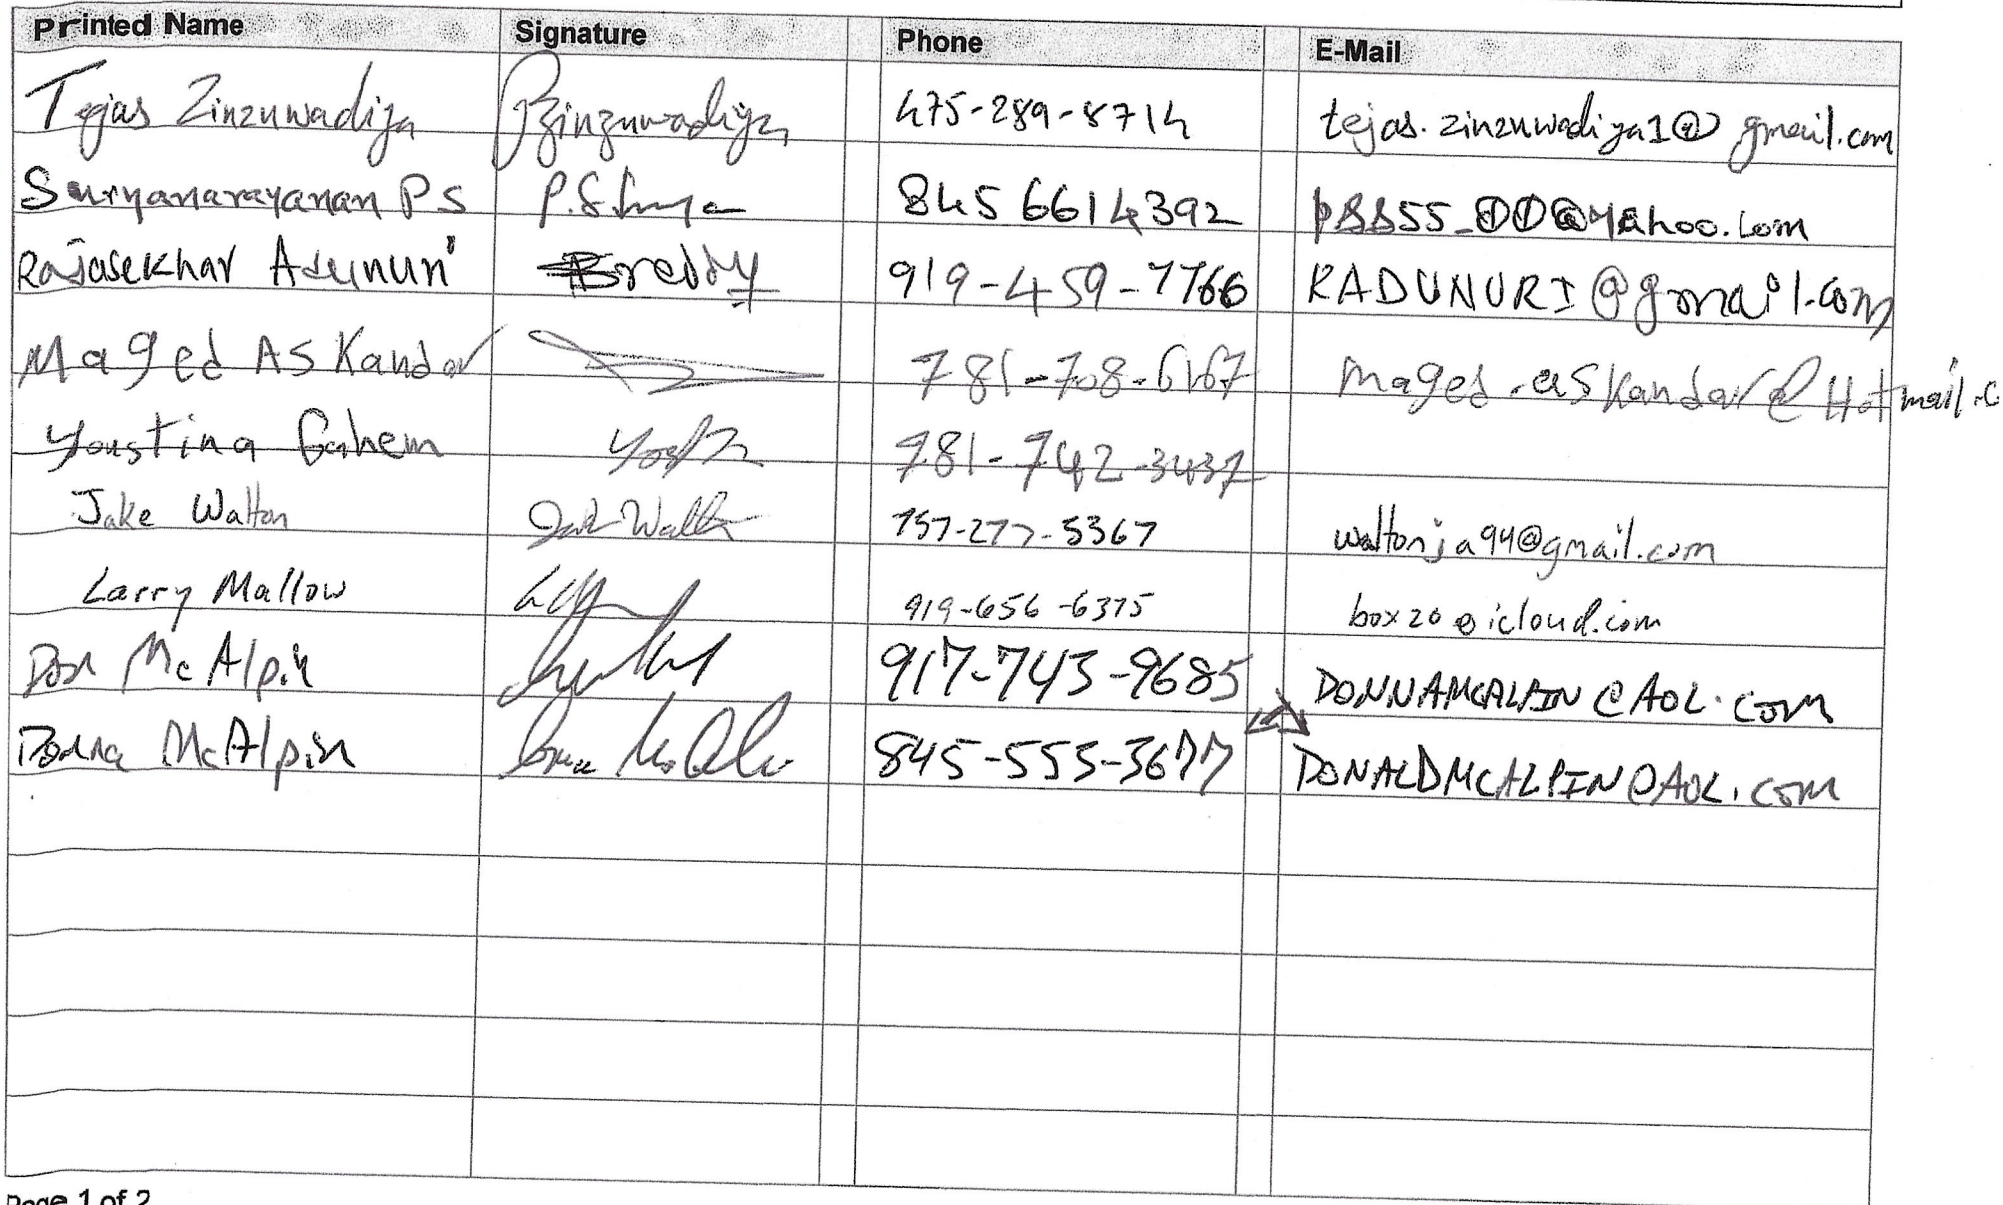 Printed Name Signature Phone E-Mail
Tejas Zinzuwadiya Zinzuwadiya 475-289-8714 tejas.zinzuwadiya1@gmail.com
Suryanarayanan PS P.S Surya 845 661 4392 pss55_00@yahoo.com
Rajasekhar Adunuri reddy 919-459-7766 RADUNURI@gmail.com
Maged ASKandar 781-708-6167 maged.asKandar@Hotmail.c
Youstina Gahem 781-742-3437
Jake Walton Jake Walton 757-277-5367 waltonja94@gmail.com
Larry Mallow 919-656-6375 box20@icloud.com
Don McAlpin 917-743-9685 DONNAMCALPIN@AOL.COM
Donna McAlpin 845-553-3677 DONALDMCALPIN@AOL.COM
Page 1 of 2